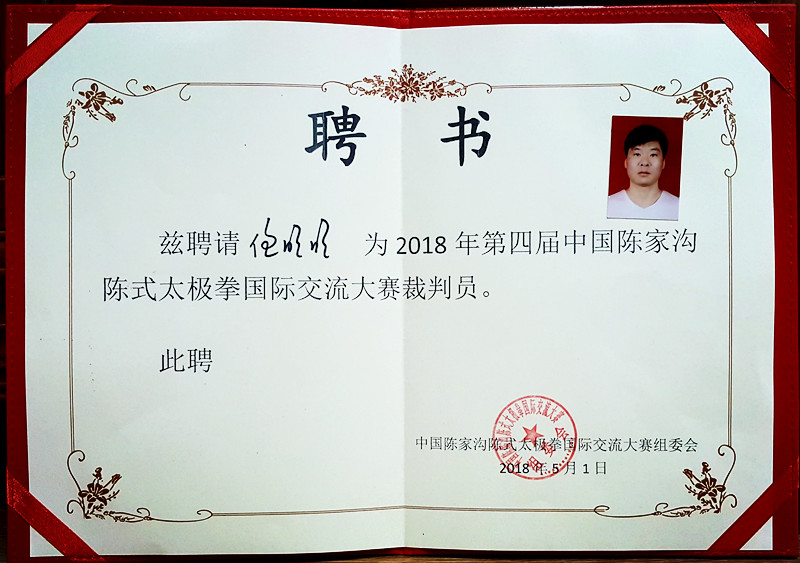 聘书
兹聘请 明明 为 2018 年第四届中国陈家沟
陈式太极拳国际交流大赛裁判员。
此聘
中国陈家沟陈式太极拳国际交流大赛组委会
2018 年 5 月 1 日